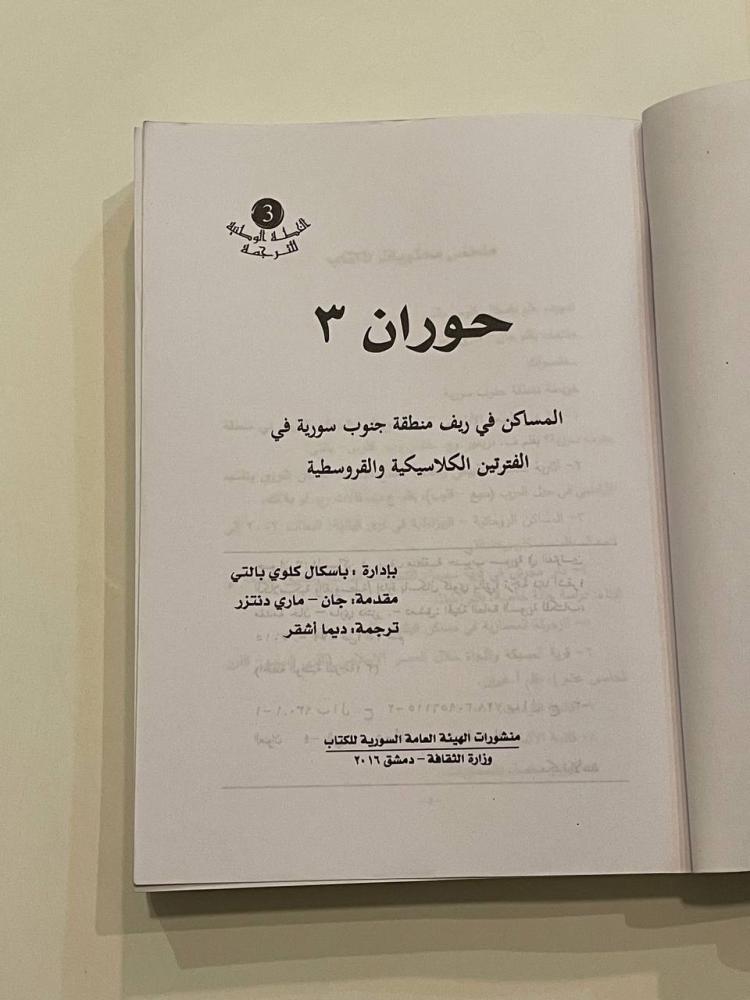 3
الخطة الوطنية
للترجمة
حوران ٣
المساكن في ريف منطقة جنوب سورية في
الفترتين الكلاسيكية والقروسطية
بإدارة : باسكال كلوي بالتي
مقدمة: جان - ماري دنتزر
ترجمة: ديما أشقر
منشورات الهيئة العامة السورية للكتاب
وزارة الثقافة - دمشق ٢٠١٦